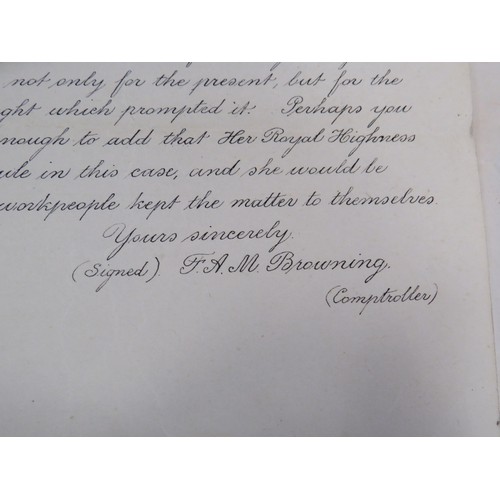 not only for the present, but for the
ght which prompted it. Perhaps you
nough to add that Her Royal Highness
ule in this case, and she would be
workpeople kept the matter to themselves.
Yours sincerely.
(Signed). F. A. M. Browning.
(Comptroller)